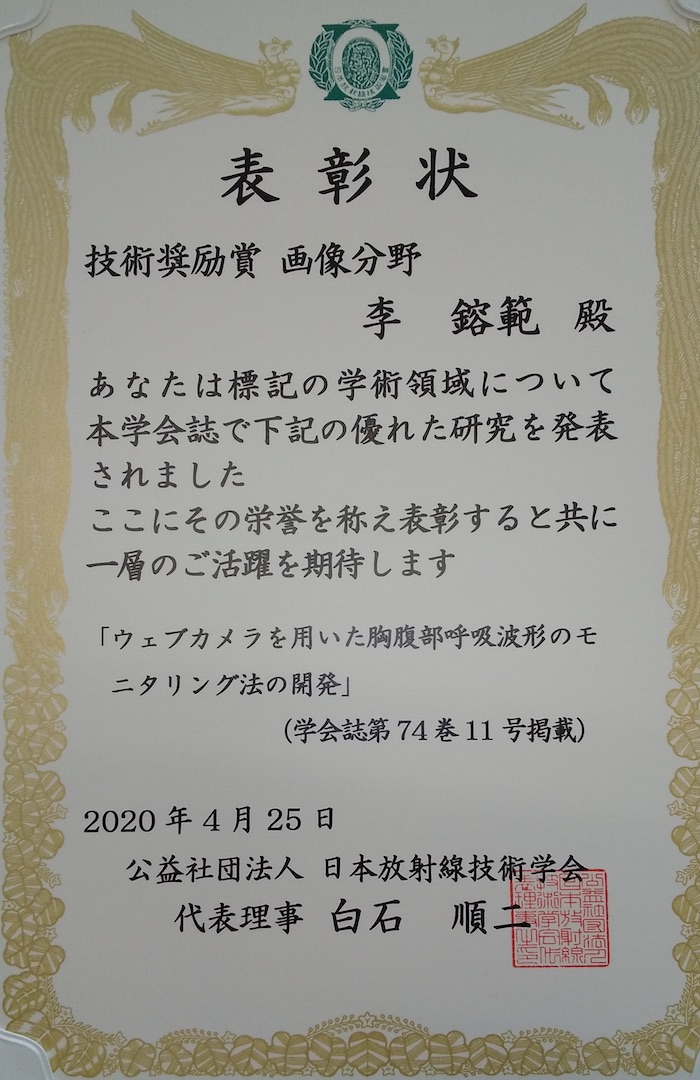 表彰状
技術奨励賞 画像分野
李 鎔範 殿
あなたは標記の学術領域について
本学会誌で下記の優れた研究を発表
されました
ここにその栄誉を称え表彰すると共に
一層のご活躍を期待します
「ウェブカメラを用いた胸腹部呼吸波形のモ
ニタリング法の開発」
(学会誌第74巻11号掲載)
2020年4月25日
公益社団法人 日本放射線技術学会
代表理事 白石 順二